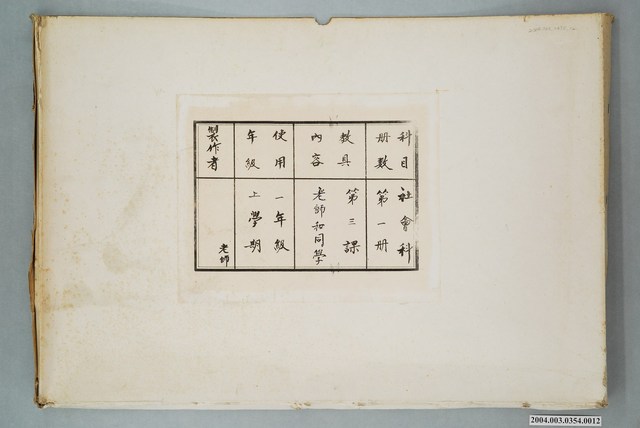 科目 社會科
冊數 第一冊
教具 第三課
內容 老師和同學
使用 一年級
年級 上學期
製作者 老師
2004.003.0354.0012